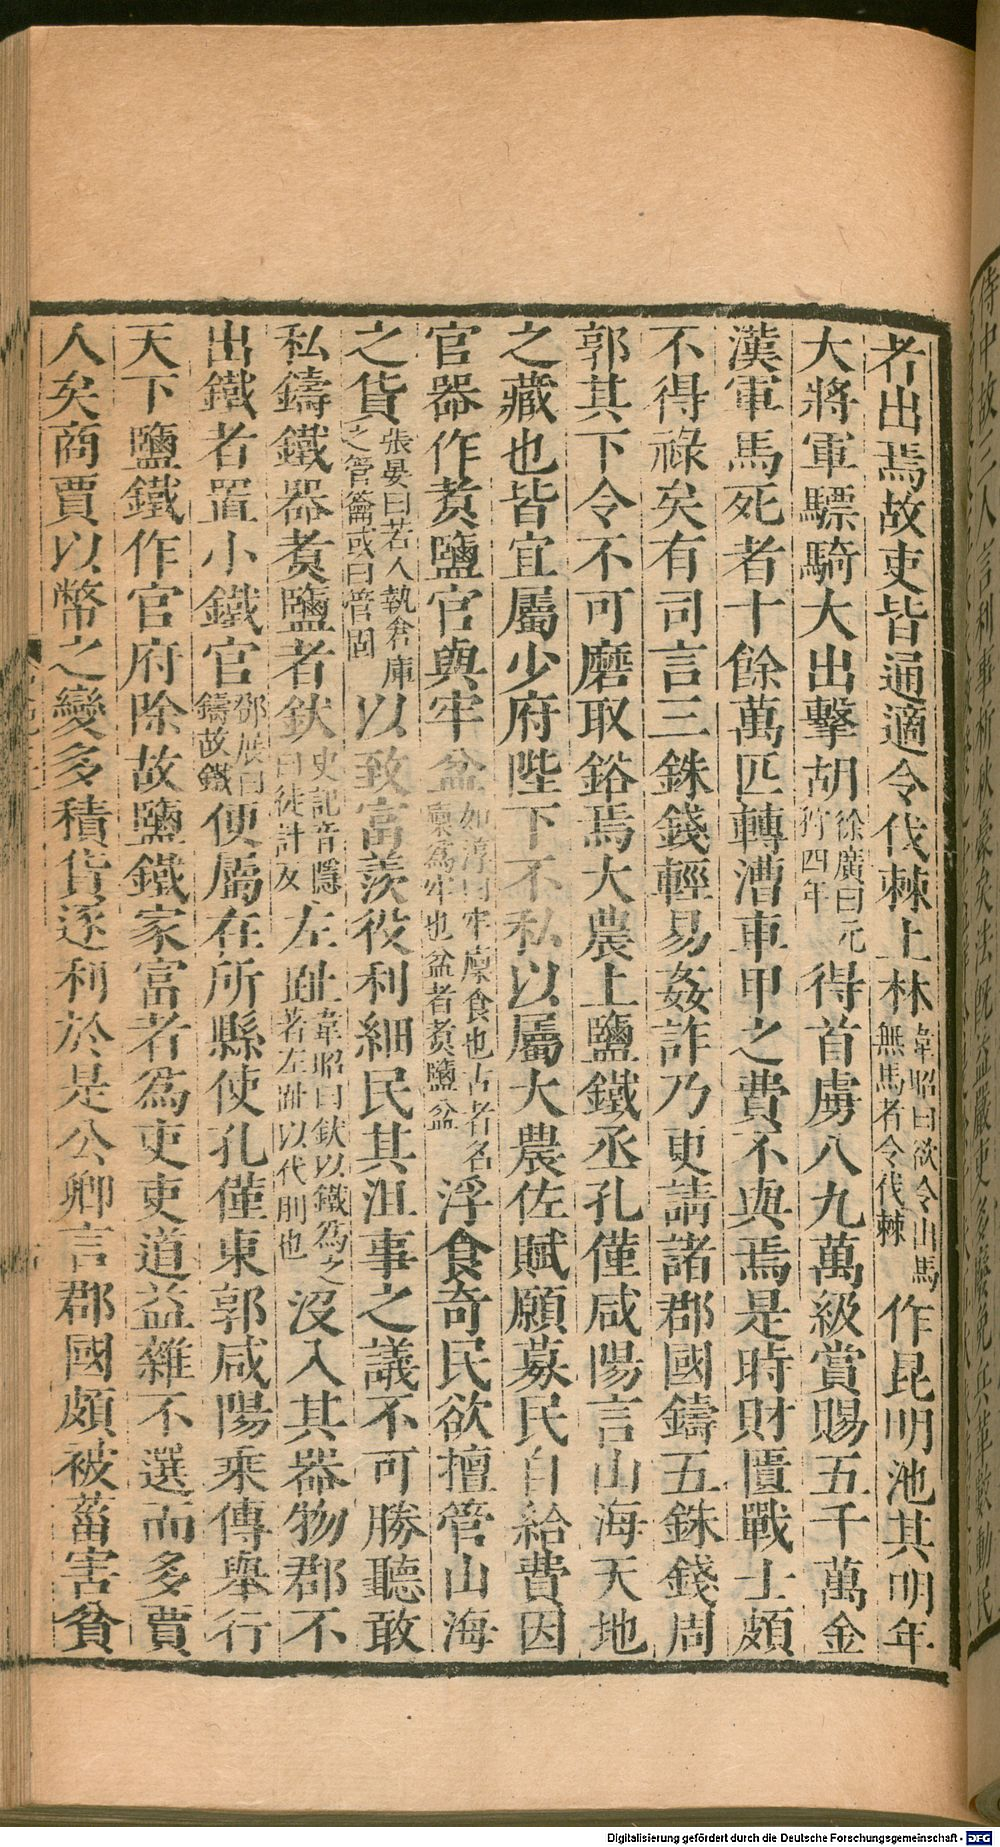 者出焉故吏皆通適令伐棘上林韋昭曰欲令出馬無馬者令伐棘作昆明池其明年
大將軍驃騎大出擊胡徐廣曰元狩四年得首虜八九萬級賞賜五千萬金
漢軍馬死者十餘萬匹轉漕車甲之費不與焉是時財匱戰士頗
不得祿矣有司言三銖錢輕易姦詐乃更請諸郡國鑄五銖錢周
郭其下令不可磨取鋊焉大農上鹽鐵丞孔僅咸陽言山海天地
之藏也皆宜屬少府陛下不私以屬大農佐賦願募民自給費因
官器作煑鹽官與牢盆如淳曰牢廩食也古者名廩爲牢也盆者煑鹽盆浮食奇民欲擅管山海
之貨張晏曰若人執倉庫之管籥或曰管固以致富羨役利細民其沮事之議不可勝聽敢
私鑄鐵器煑鹽者釱史記音隱曰徒計反左趾韋昭曰釱以鐵為之著左趾以代刖也沒入其器物郡不
出鐵者置小鐵官鄧展曰鑄故鐵便屬在所縣使孔僅東郭咸陽乘傳舉行
天下鹽鐵作官府除故鹽鐵家富者爲吏吏道益雜不選而多賈
人矣商賈以幣之變多積貨逐利於是公卿言郡國頗被菑害貧
Digitalisierung gefördert durch die Deutsche Forschungsgemeinschaft - DFG